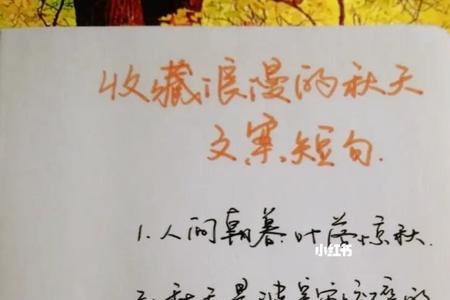 收藏浪漫的秋天
文案短句.
1.人间朝暮,叶落惊秋.
小红书
2.秋天是